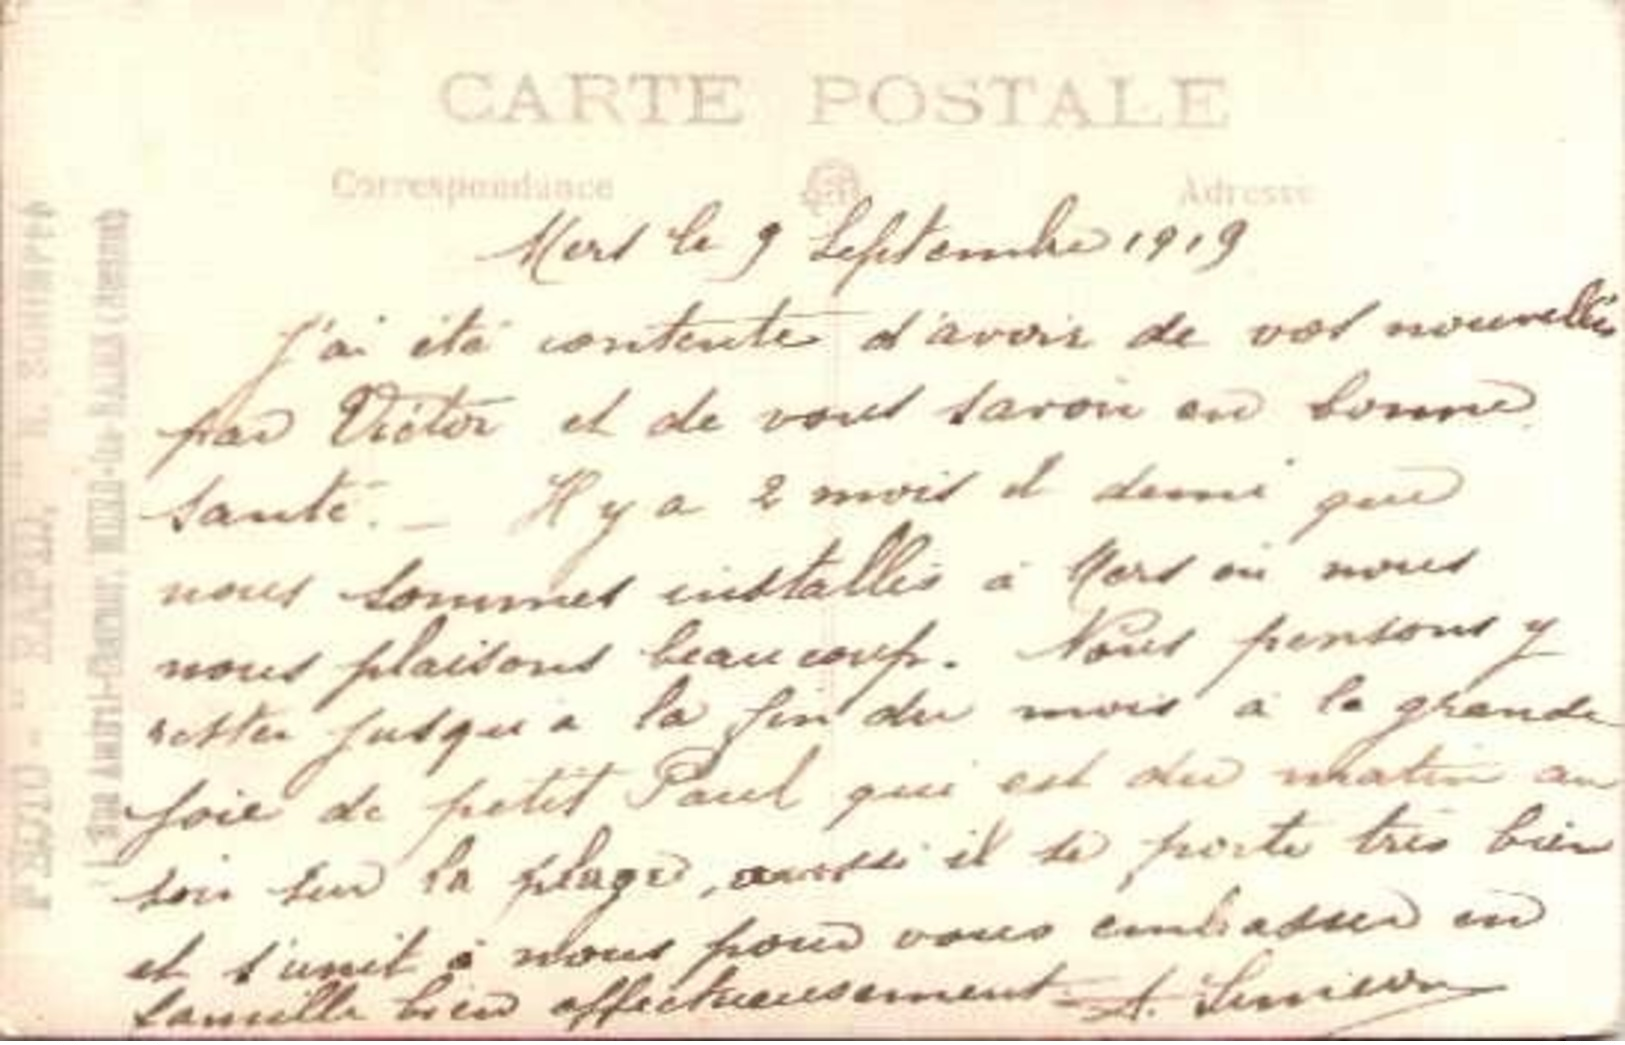 CARTE POSTALE
Correspondance
Adresse
Mers le 9 Septembre 1919
J'ai été contente d'avoir de vos nouvelles
par Victor et de vous savoir en bonne
santé. _ Il y a 2 mois et demi que
nous sommes installés à Mers où nous
nous plaisons beaucoup. Nous pensons y
rester jusqu'à la fin du mois à la grande
joie de petit Paul qui est du matin au
soir sur la plage, aussi il se porte très bien
et s'unit à nous pour vous embrasser en
famille bien affectueusement. A.
PHOTO - " RAPID, "
Rue Amiral-Courbet, MERS-les-BAINS (Somme)